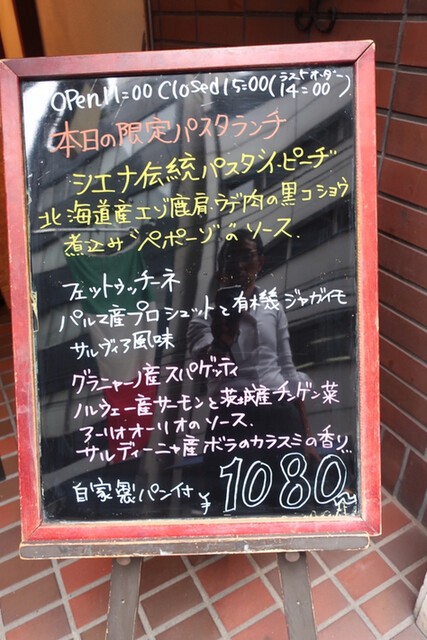 OPEN 11=00 Closed 15=00(ラストオーダー 14=00)
本日の限定パスタランチ
シエナ伝統パスタ"イ・ピーチ"
北海道産エゾ鹿肩・ウデ肉の黒コショウ
煮込み"ペポーゾ"のソース.
フェットゥッチーネ
パルマ産プロシュットと有機ジャガイモ
サルヴィア風味
グラニャーノ産スパゲッティ
ノルウェー産サーモンと茨城産チンゲン菜
アーリオオーリオのソース.
サルディーニャ産ボラのカラスミの香り..
自家製パン付 ¥1080